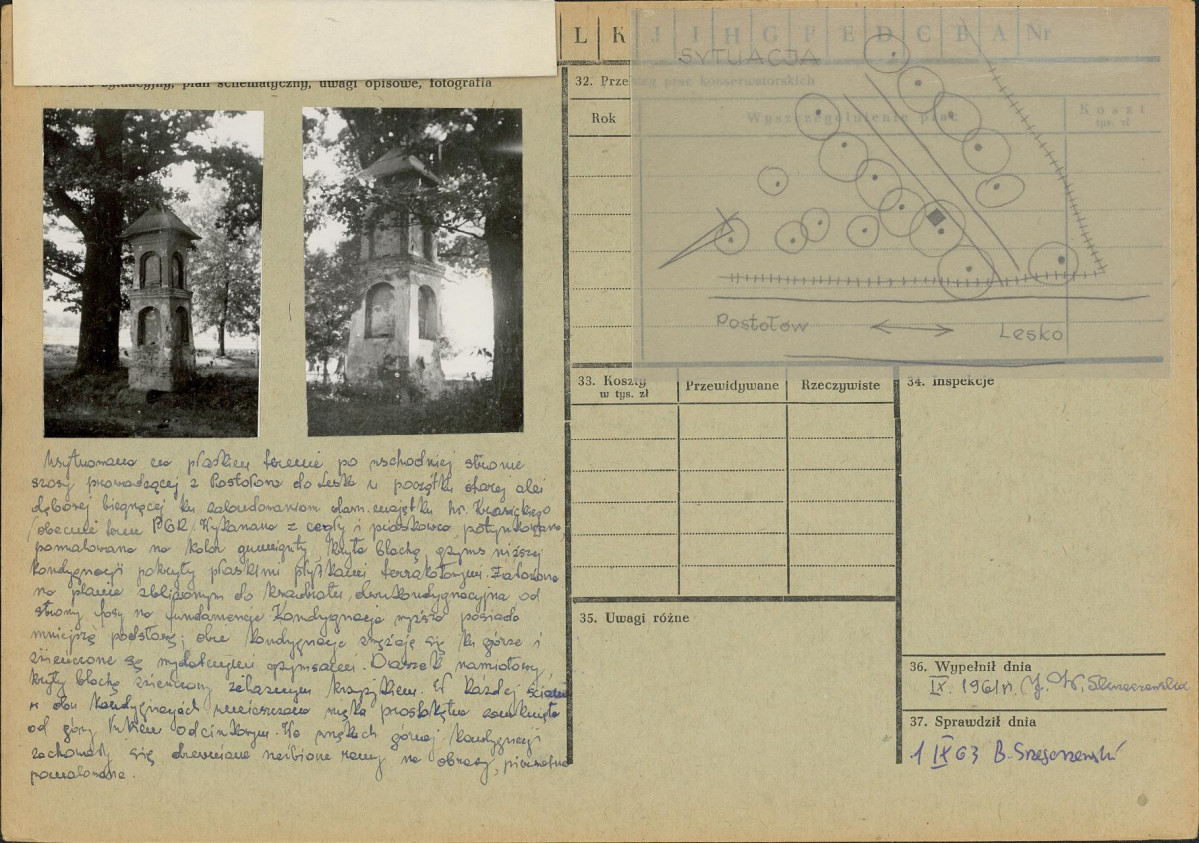 L K J I H G F E D C B A Nr
SYTUACJA
plan schematyczny, uwagi opisowe, fotografia
32. Prze prac konserwatorskich
Rok
Wyszczególnienie prac
Koszt
tys. zł
Postołów
Lesko
33. Koszty
w tys. zł
Przewidywane
Rzeczywiste
34. Inspekcje
Usytuowana na płaskim terenie po wschodniej stronie
szosy prowadzącej z Postołowa do Leska u początku starej alei
dębowej biegnącej ku zabudowaniom dawn. majątku hr. Krasickiego
/obecnie teren PGR/. Wykonana z cegły i piaskowca, potynkowana,
pomalowana na kolor, kryta blachą, gzyms niższej
kondygnacji pokryty płaskimi płytkami terrakotowymi. Założona
na planie zbliżonym do kwadratu, dwukondygnacyjna od
strony fosy na fundamencie. Kondygnacja wyższa posiada
mniejszą podstawę; obie kondygnacje zwężają się ku górze i
zwieńczone są wydatnymi gzymsami. Daszek namiotowy,
kryty blachą zwieńczony żelaznym krzyżykiem. W każdej ścianie
w obu kondygnacjach umieszczona wnęka prostokątna zamknięta
od góry łukiem odcinkowym. We wnękach górnej kondygnacji
zachowały się drewniane ramy na obrazy, pierwotnie
pomalowane.
35. Uwagi różne
36. Wypełnił dnia
IX. 1961 r.
37. Sprawdził dnia
1 IX 63 B.